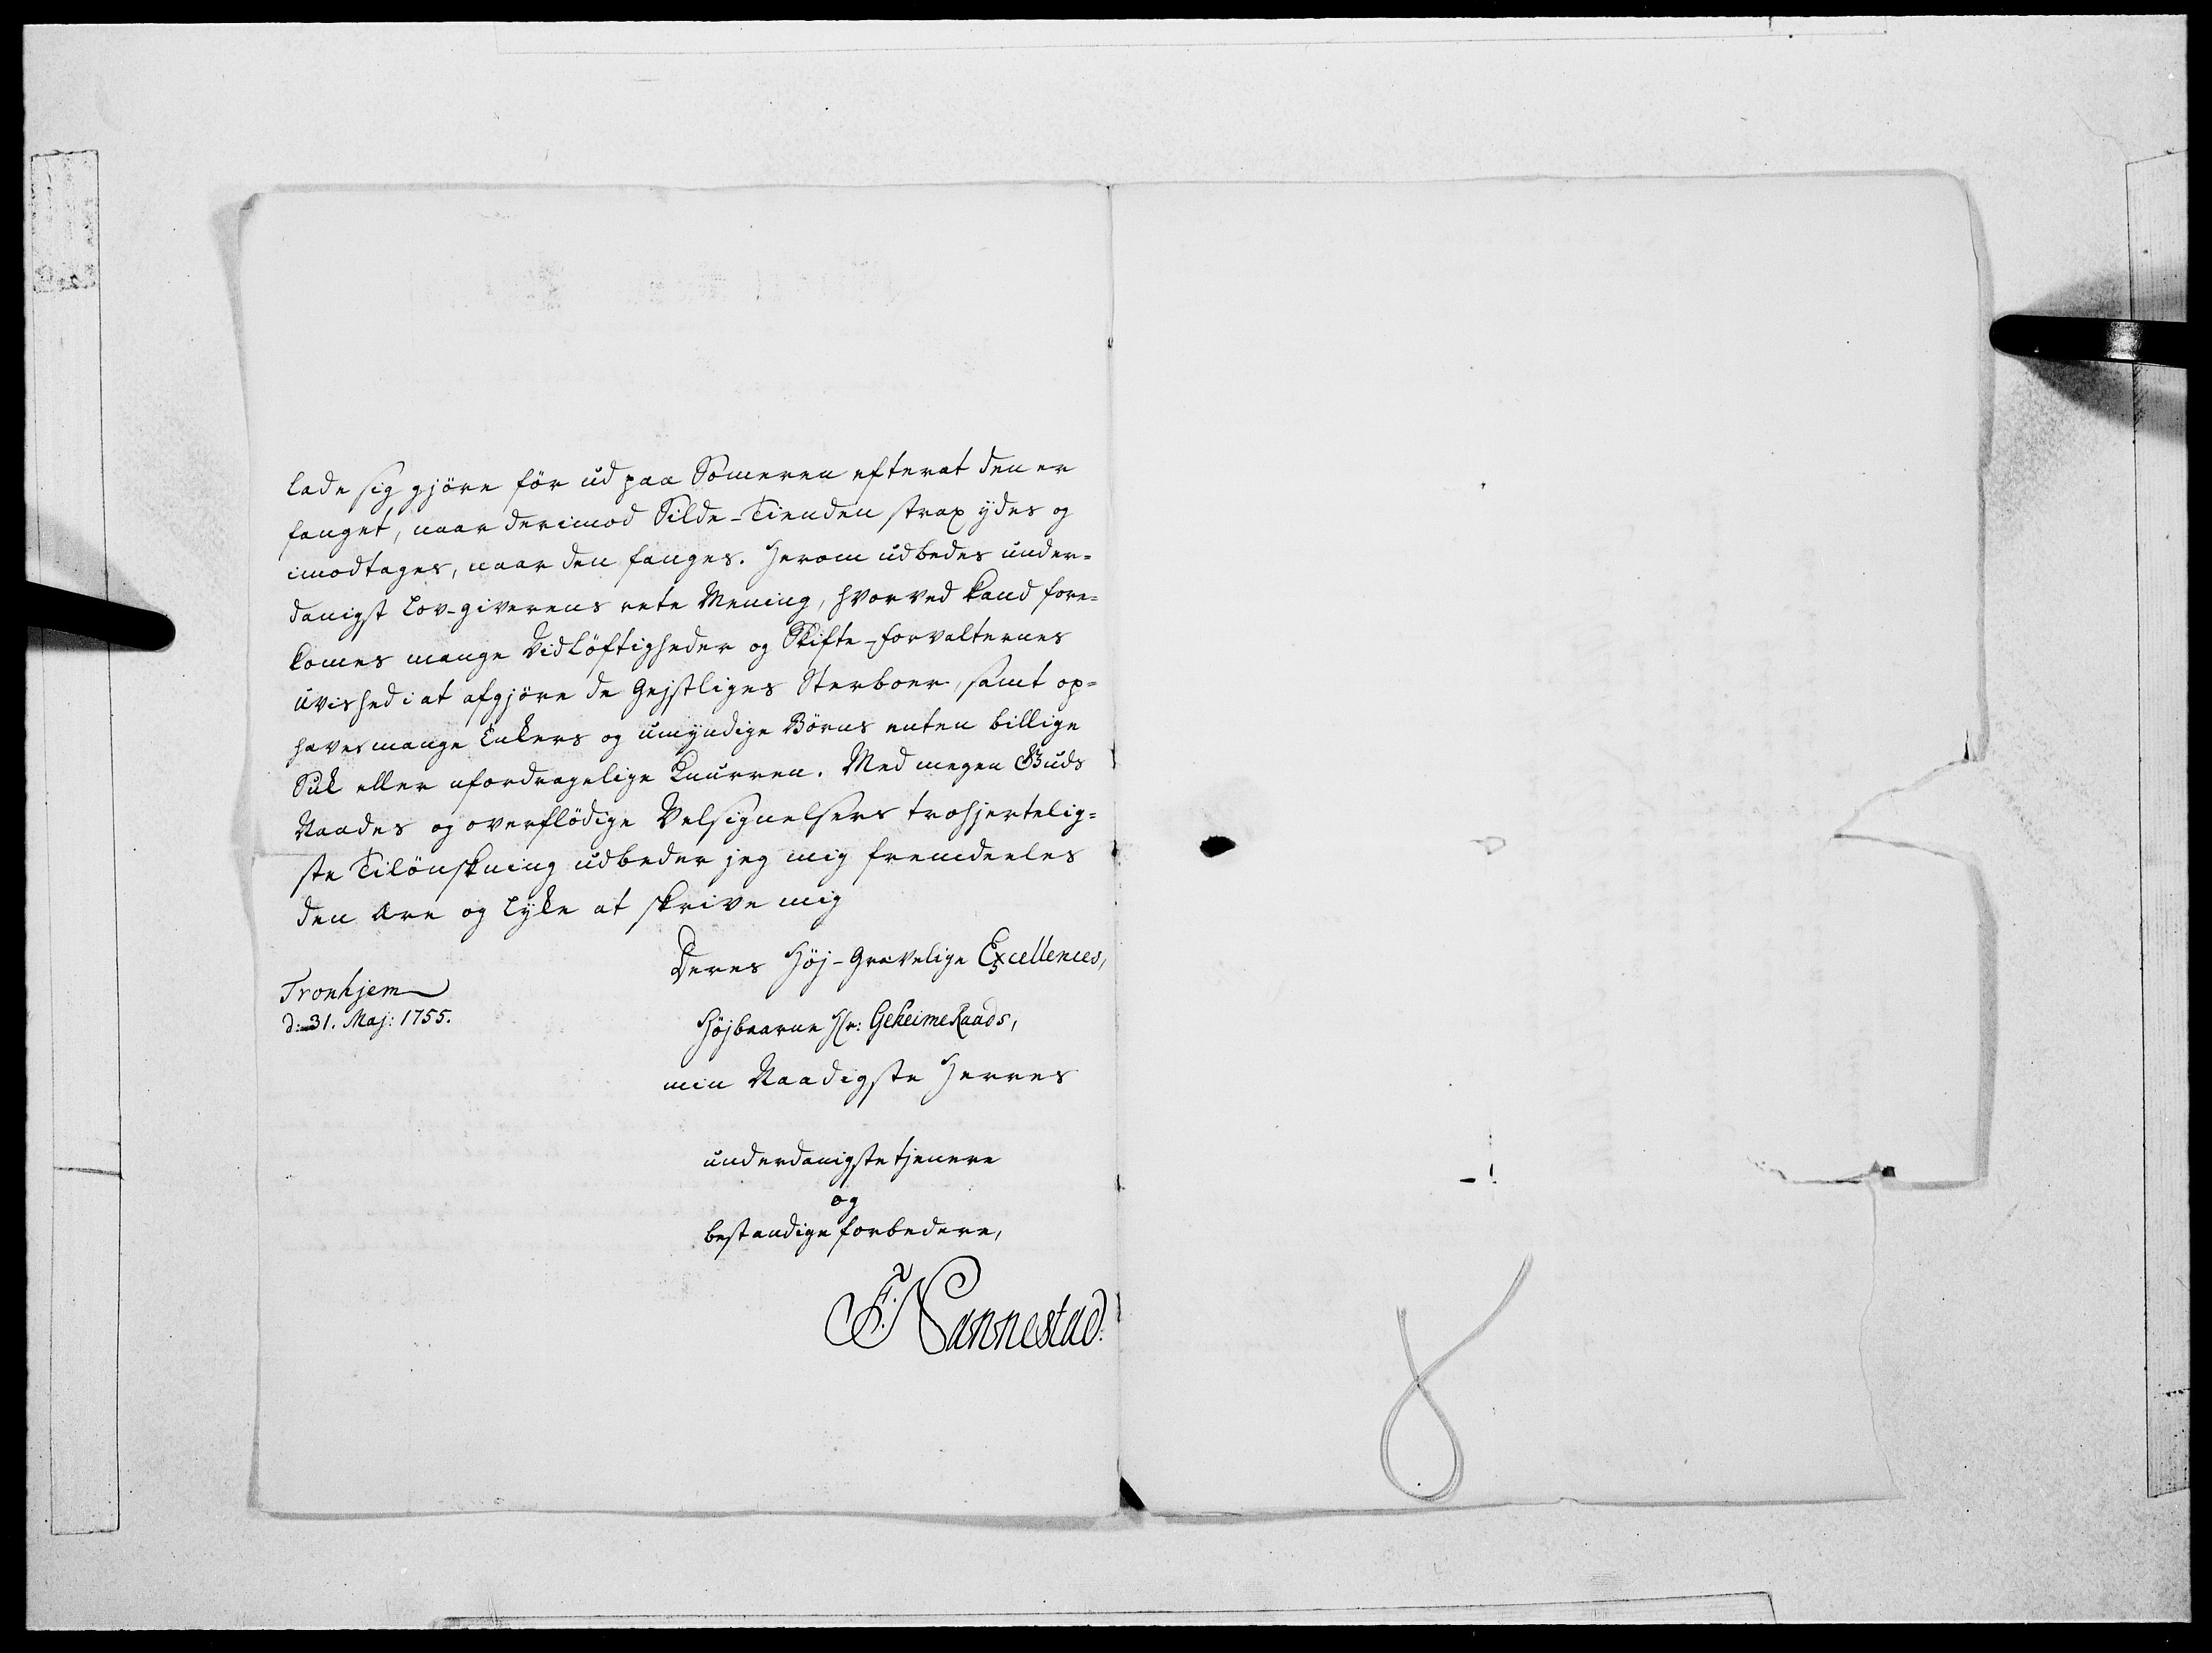 lade sig gjöre för ud paa Someren efterat den er
fanget, naar derimod Silde-Tienden strax ydes og
imodtages, naar den fanges. Herom udbedes under=
danigst Lov-giverens rete Mening, hvorved kand fore=
komes mange Vidlöftigheder og Skifte-forvalternes
uvished i at afgjöre de Gejstliges Sterboer, samt op=
haves mange Enkers og umyndige Börns enten billige
Suk eller ufordragelige Knurren. Med megen Guds
Naades og overflödige Velsignelsers trohjertelig=
ste Tilönskning udbeder jeg mig fremdeeles
den Ære og Lyke at skrive mig
Deres Höj-Grevelige Excellences,
Tronhjem
d: 31. Maj: 1755.
Höjbaarne Hr: GeheimeRaads,
min Naadigste Herres
underdanigste tjenere
og
bestandige forbedere,
F. Nannestad.